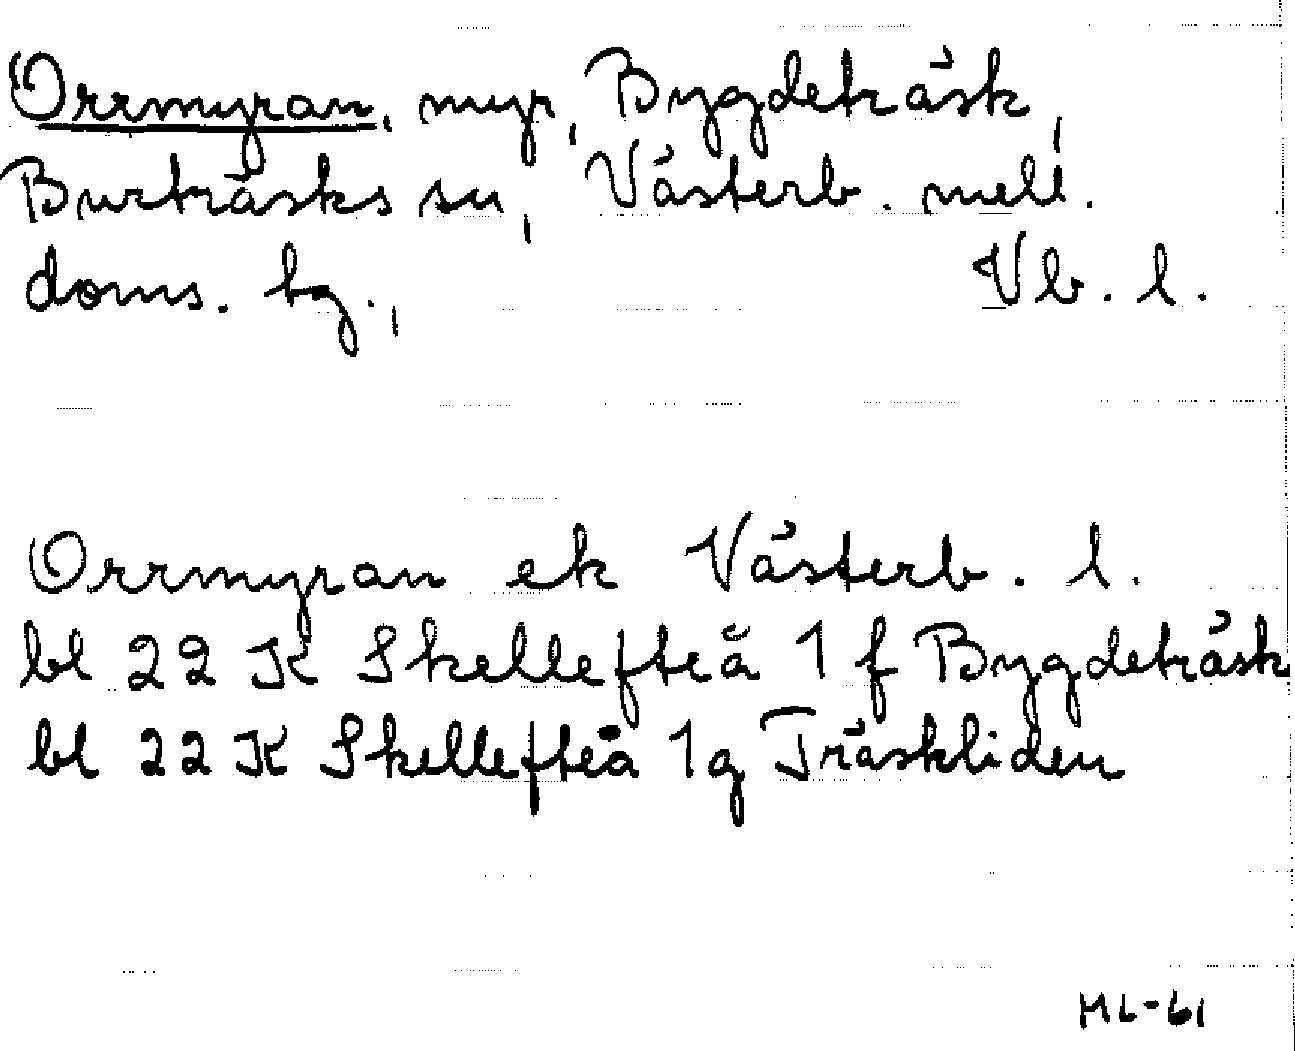 Orrmyran, myr, Bygdeträsk,
Burträsks sn, Västerb. mell.
doms. hg., Vb. l.
Orrmyran ek Västerb. l.
bl 22 K Skellefteå 1 f Bygdeträsk
bl 22 K Skellefteå 1g Träskliden
ML-61